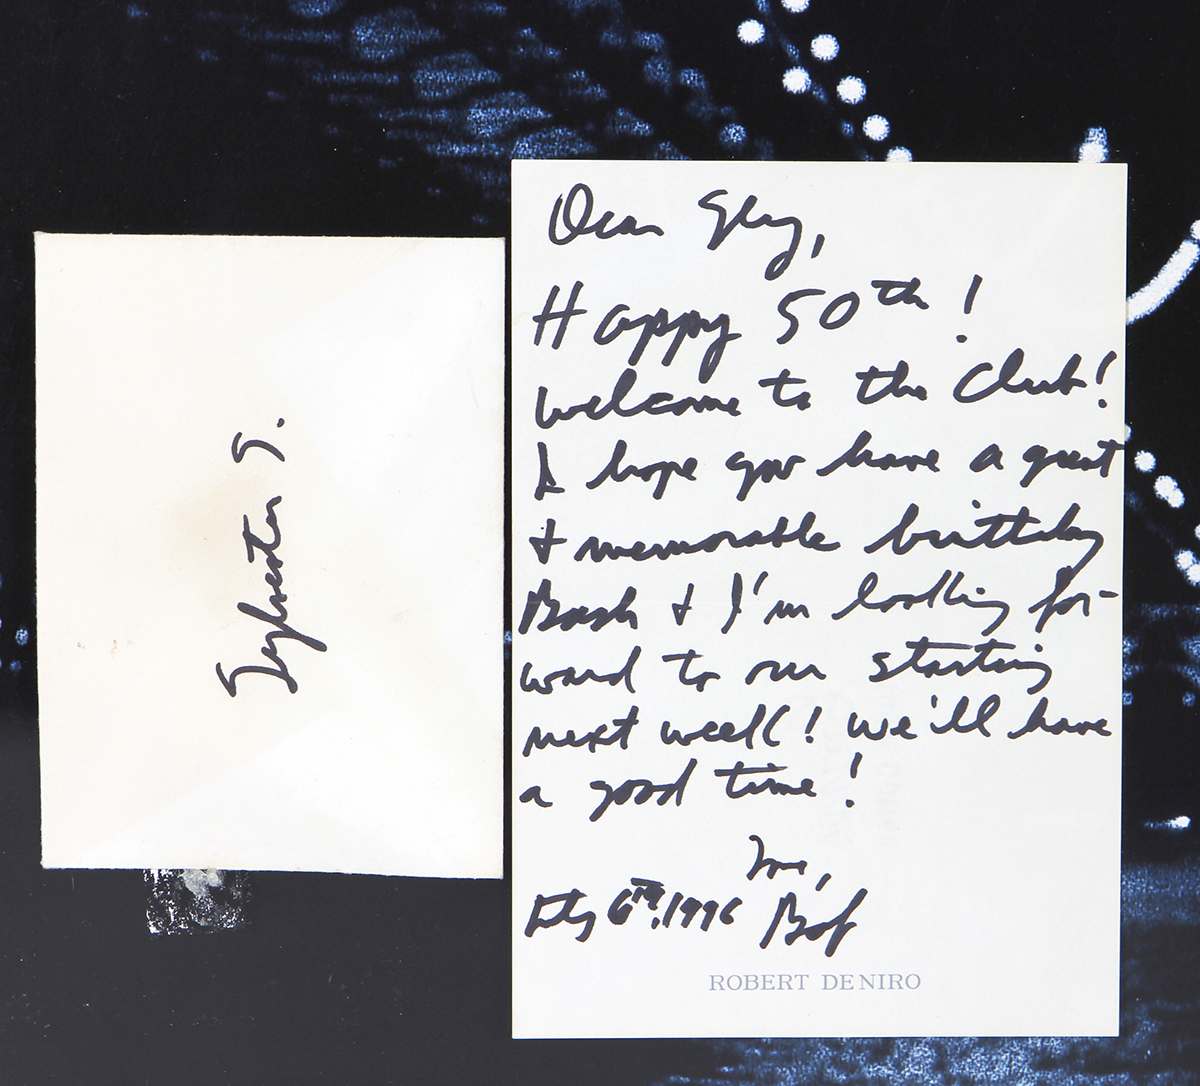 Sylvester S.
Dear Sly,
Happy 50th!
welcome to the Club!
I hope you have a great
+ memorable birthday
Bash + I'm looking for-
ward to our starting
next week! we'll have
a good time!
Love,
July 6TH, 1996 Bob
ROBERT DE NIRO